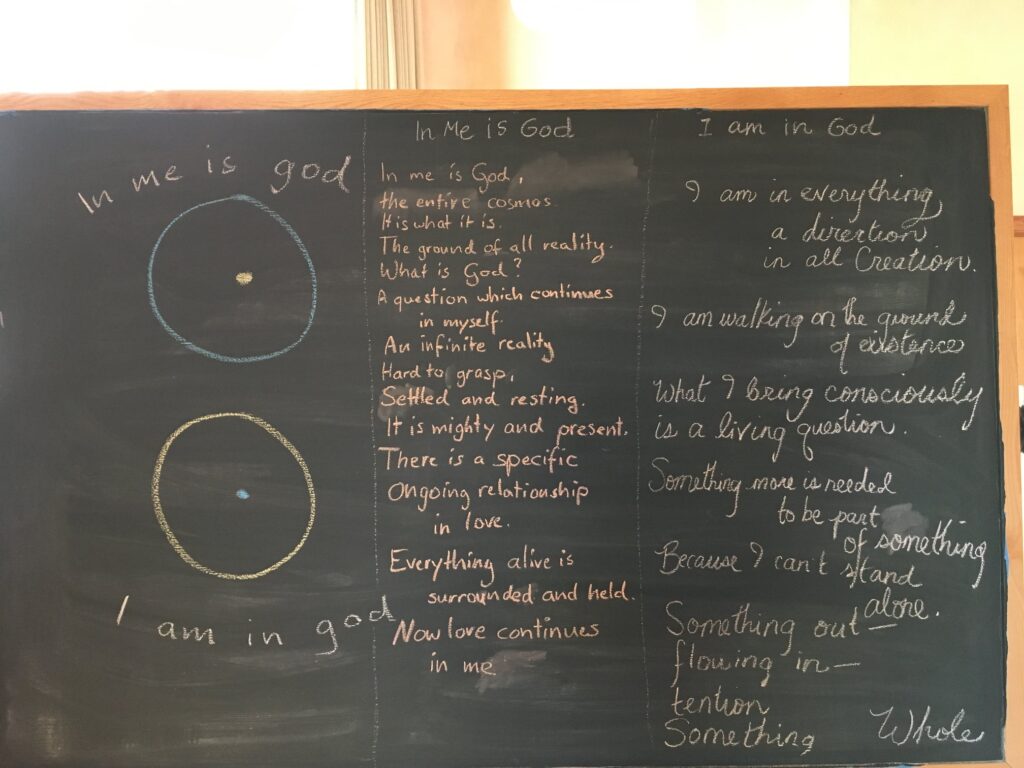 In me is god
I am in god
In Me is God
In me is God,
the entire cosmos
It is what it is.
The ground of all reality.
What is God?
A question which continues
in myself.
An infinite reality
Hard to grasp,
Settled and resting.
It is mighty and present.
There is a specific
Ongoing relationship
in love.
Everything alive is
surrounded and held.
Now love continues
in me
I am in God
I am in everything,
a direction
in all Creation.
I am walking on the ground
of existence
What I bring consciously
is a living question.
Something more is needed
to be part
of something
Because I can't stand
alone.
Something out—
flowing in—
tention
Something Whole